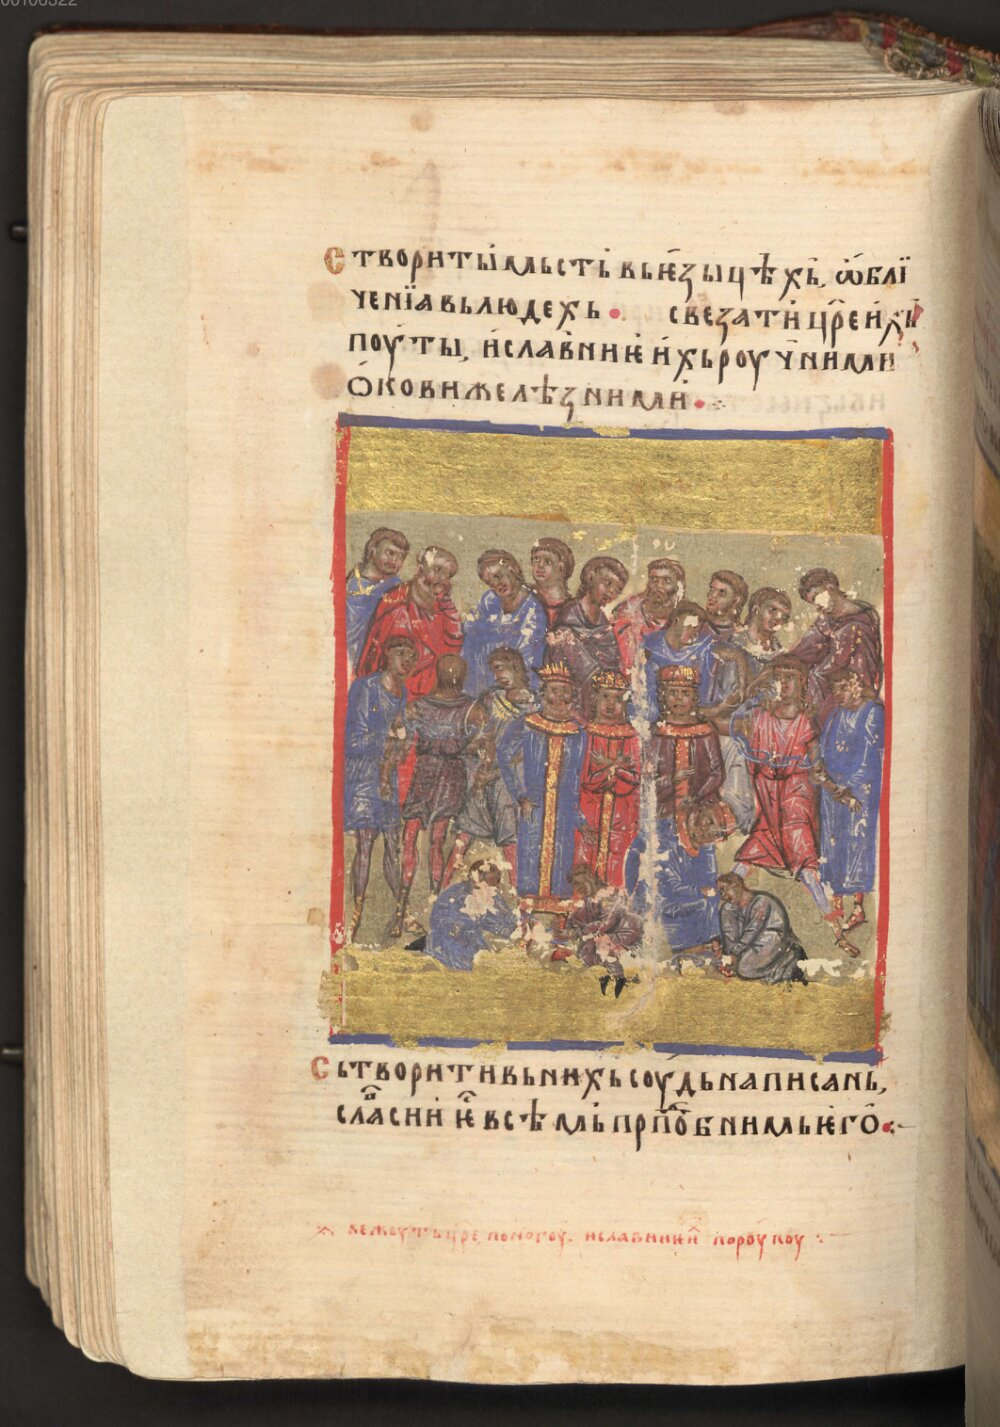 00106322
Створиты мьсть вь ѥзыцѣхь, ѡблї
ченїа вь людехь • свезати цр҃е ихь
поуты, и славниѥ ихь роучними
окови желѣзними •
Сьтворити вь нихь соудь написань,
слава сии ѥⷭ҇ всѣмь прⷣпобнимь ѥго •
вежоуть цре, по ногоу. и славниѥ по роукоу :—